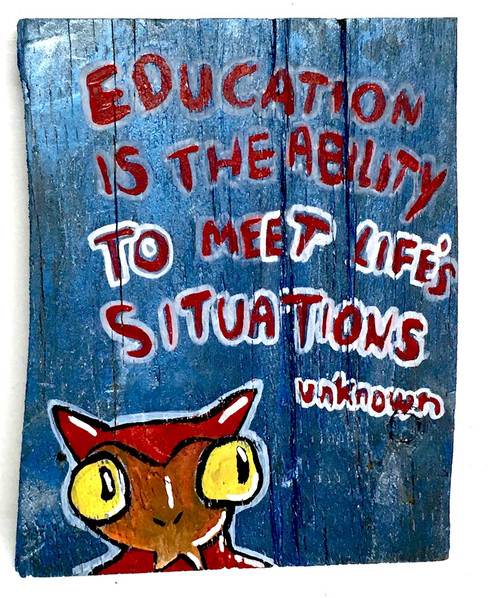 EDUCATION
IS THE ABILITY
TO MEET LIFE'S
SITUATIONS
unknown